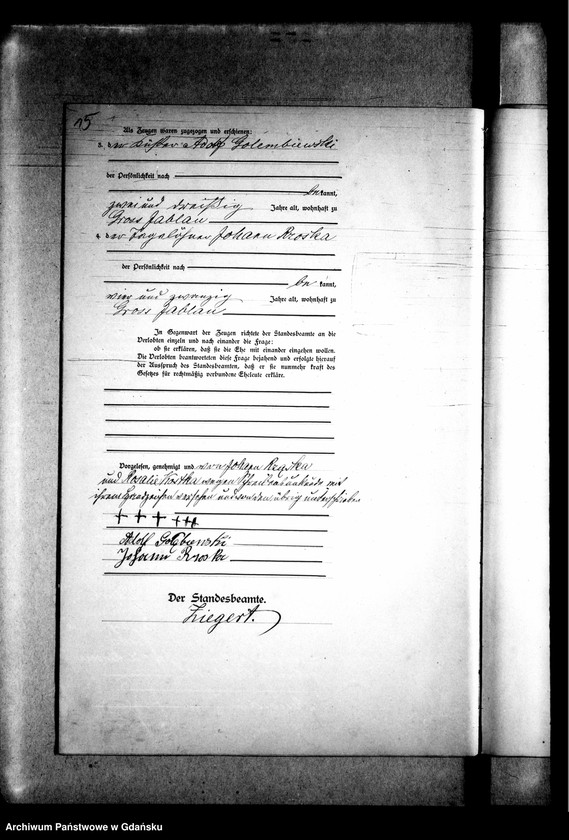 15
Als Zeugen waren zugezogen und erschienen:
3. der Küster Adolf Golembiewski
der Persönlichkeit nach
be kannt,
zwei und dreißig Jahre alt, wohnhaft zu
Gross Jablau
4. der Tagelöhner Johann Rzoska
der Persönlichkeit nach
be kannt,
vier und zwanzig Jahre alt, wohnhaft zu
Gross Jablau
In Gegenwart der Zeugen richtete der Standesbeamte an die
Verlobten einzeln und nach einander die Frage:
ob sie erklären, daß sie die Ehe mit einander eingehen wollen.
Die Verlobten beantworteten diese Frage bejahend und erfolgte hierauf
der Ausspruch des Standesbeamten, daß er sie nunmehr kraft des
Gesetzes für rechtmäßig verbundene Eheleute erkläre.
Vorgelesen, genehmigt und von Johann
und Rosalie wegen Schreibunkunde mit
ihrem Handzeichen versehen und von den übrig unterschrieben
+ + + +++
Adolf Golbiewski
Johann Rzoska
Der Standesbeamte.
Ziegert.
Archiwum Państwowe w Gdańsku